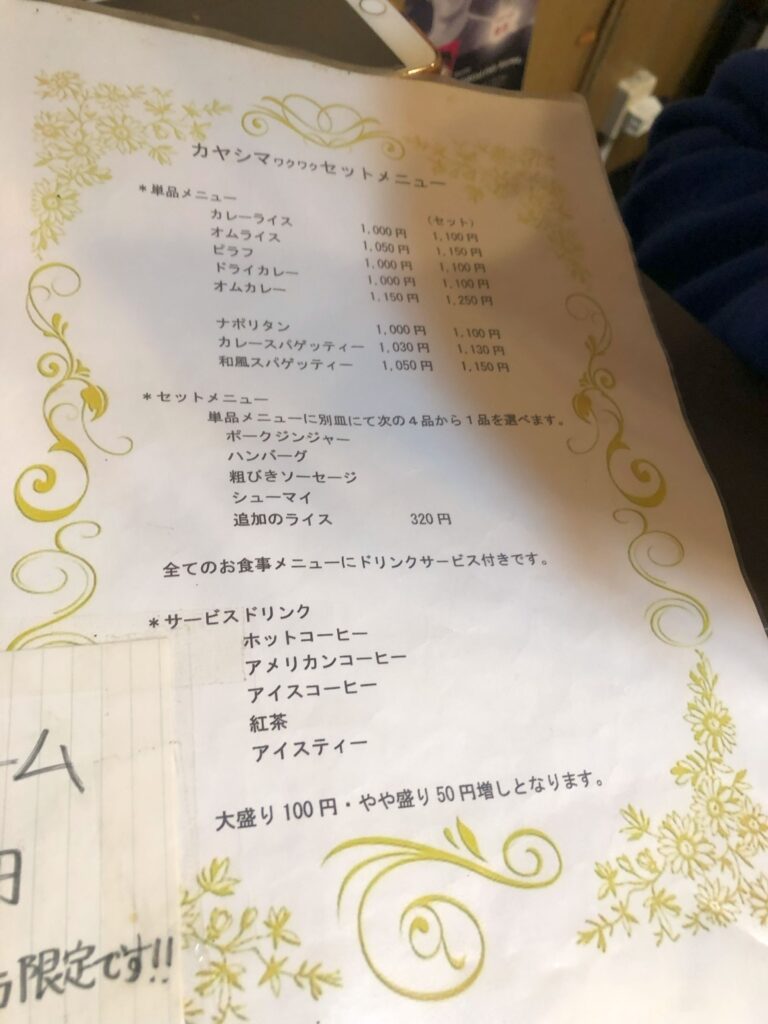 カヤシマワクワクセットメニュー
*単品メニュー
(セット)
カレーライス 1,000円 1,100円
オムライス 1,050円 1,150円
ピラフ 1,000円 1,100円
ドライカレー 1,000円 1,100円
オムカレー 1,150円 1,250円
ナポリタン 1,000円 1,100円
カレースパゲッティー 1,030円 1,130円
和風スパゲッティー 1,050円 1,150円
*セットメニュー
単品メニューに別皿にて次の4品から1品を選べます。
ポークジンジャー
ハンバーグ
粗びきソーセージ
シューマイ
追加のライス 320円
全てのお食事メニューにドリンクサービス付きです。
*サービスドリンク
ホットコーヒー
アメリカンコーヒー
アイスコーヒー
紅茶
アイスティー
大盛り100円・やや盛り50円増しとなります。
ーム
円
限定です!!